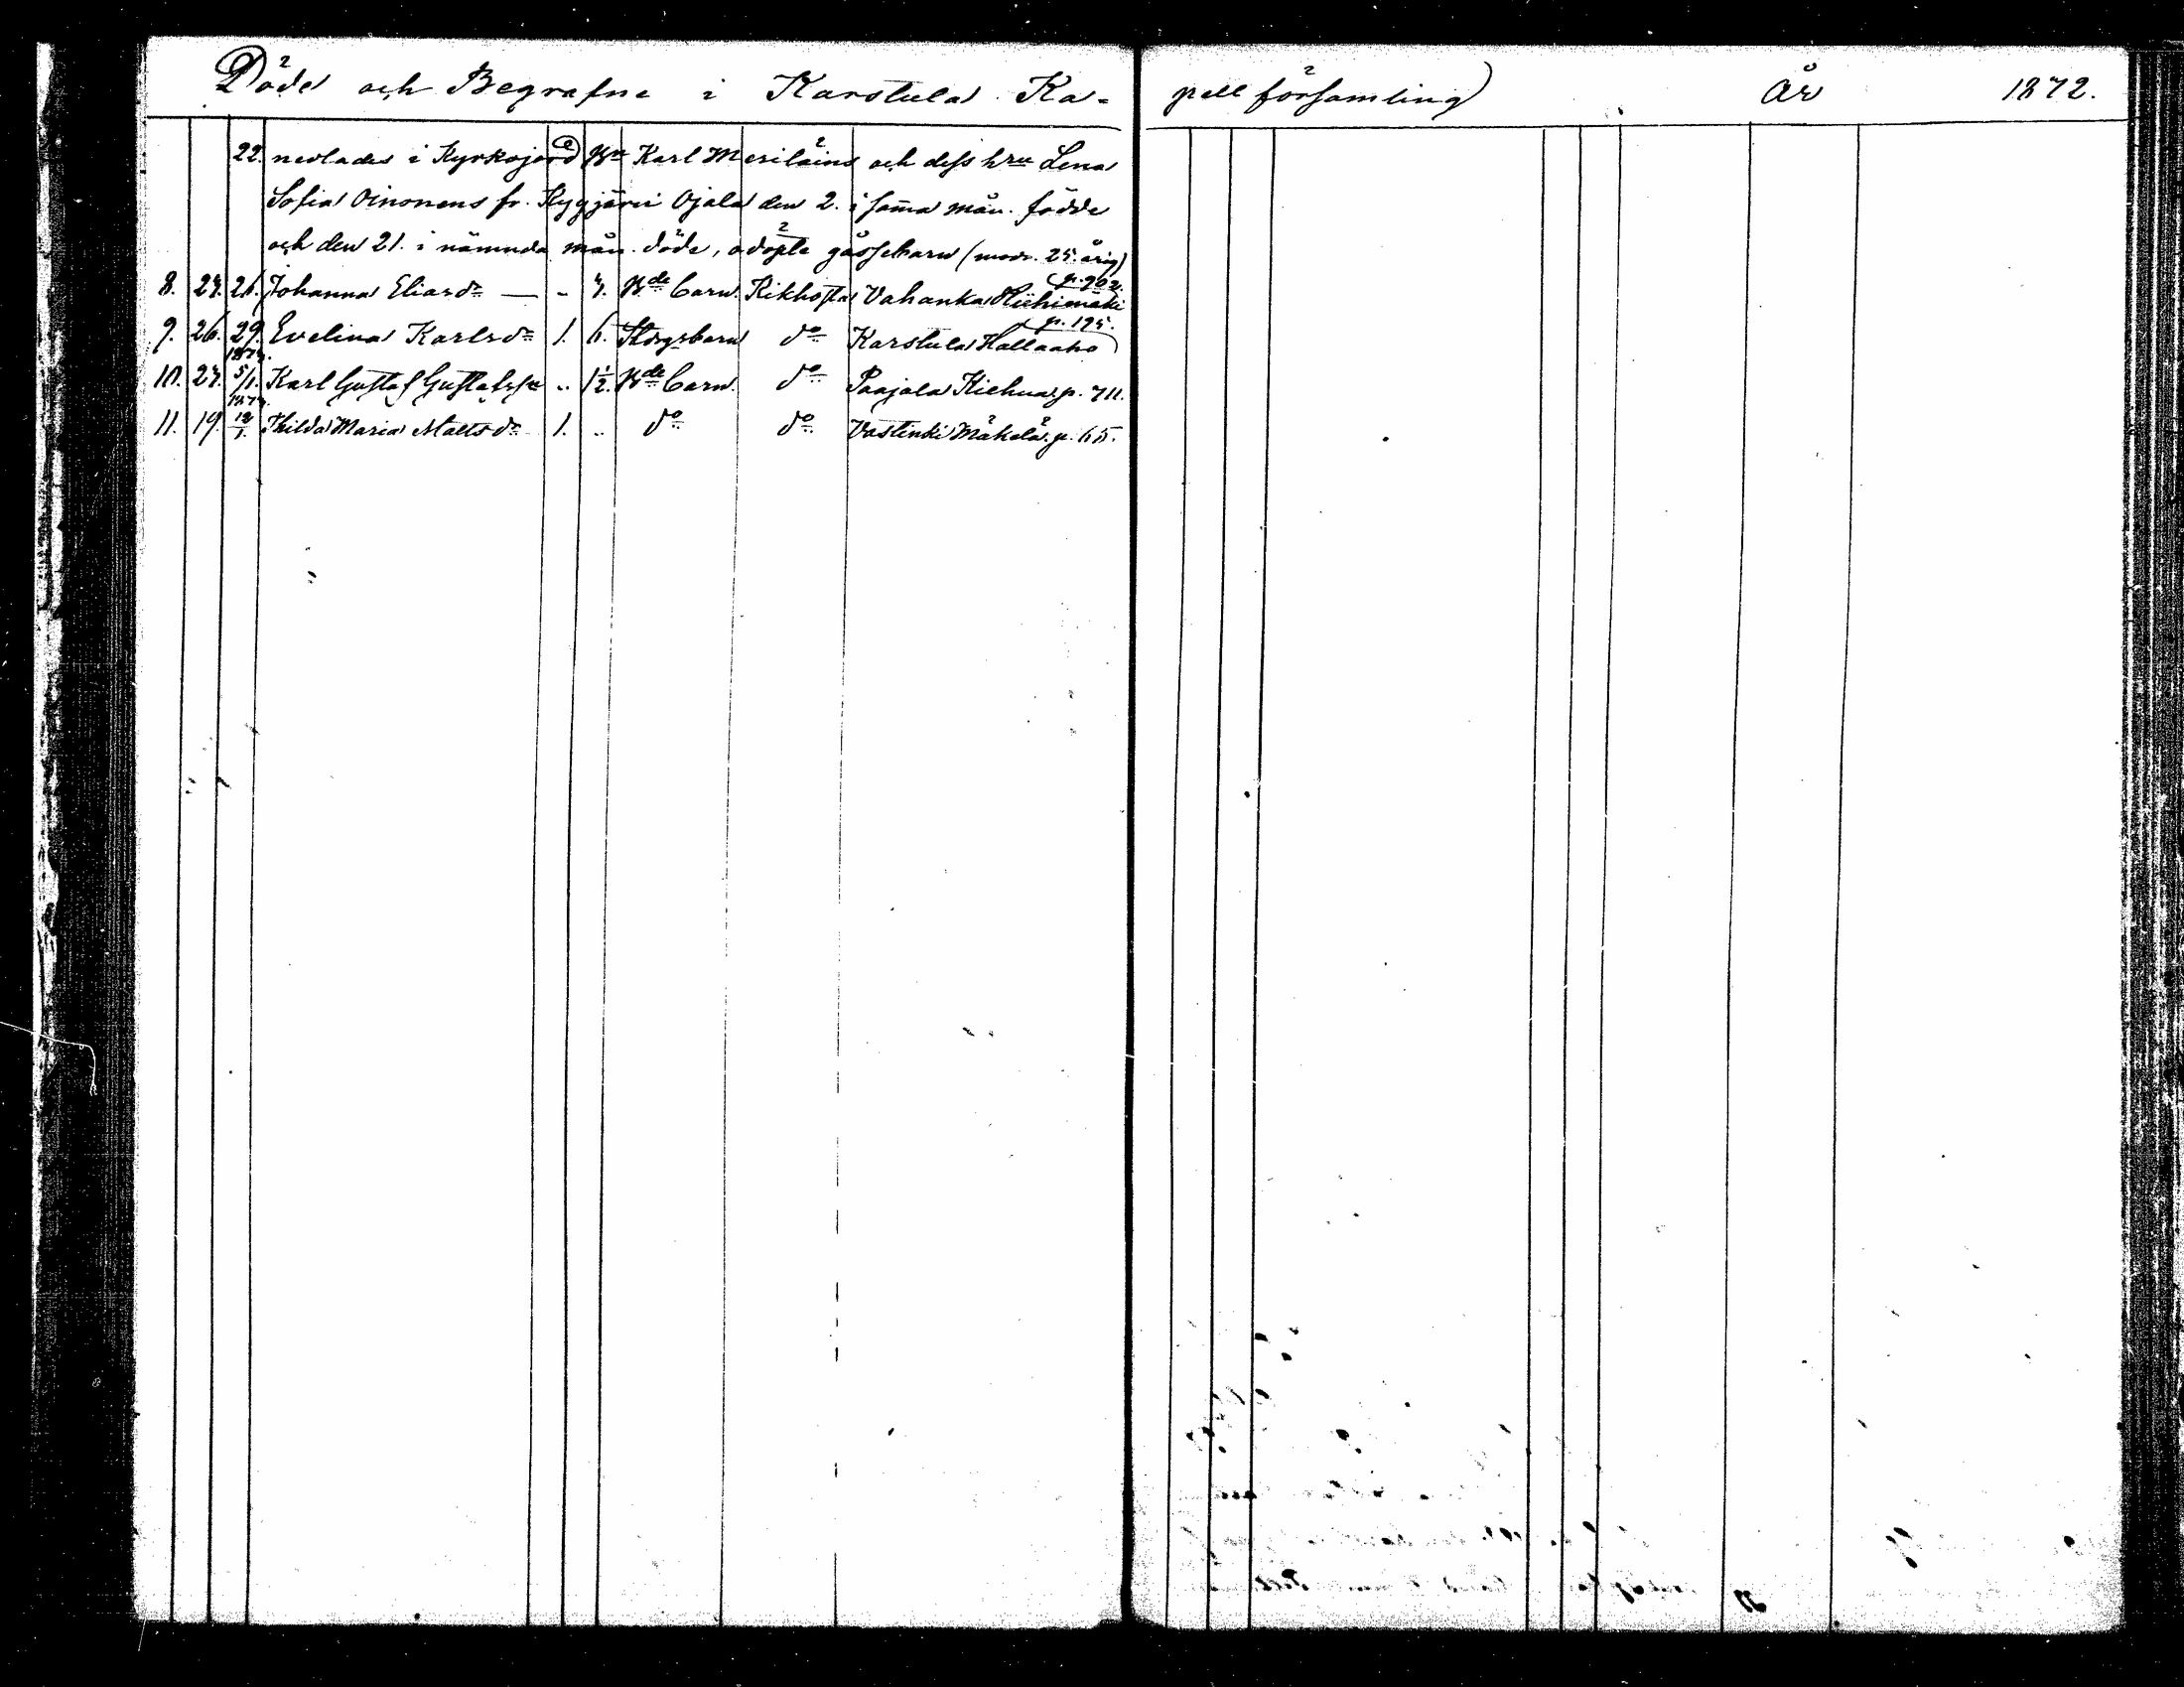 Döde och Begrafne i Karstula Ka-
pellförsamling År 1872.
22. nedlades i Kyrkojord Karl Meriläins och dess hru Lena
Sofia Oinonens fr. Kyyjärvi Ojala den 2. i samma mån. födde
och den 21. i nämnda mån. döde, odöpte gossebarn (modr. 25. årig)
8. 24. 26. Johanna Eliasdr — - 4. Bde barn. Kikhosta Vahanka Hiihimäki p. 202.
9. 26. 29. Evelina Karlsdr 1. 6. Thorpsbarn do Karstula Hallaaho p. 195.
1873.
10. 27. 5/1. Karl Gustaf Gustafsson .. 1½. Bde barn. do Paajala Kiehua p. 711.
1873.
11. 19. 12/1. Hilda Maria Mattsdr 1. .. do do Vastinki Mäkelä p. 65.